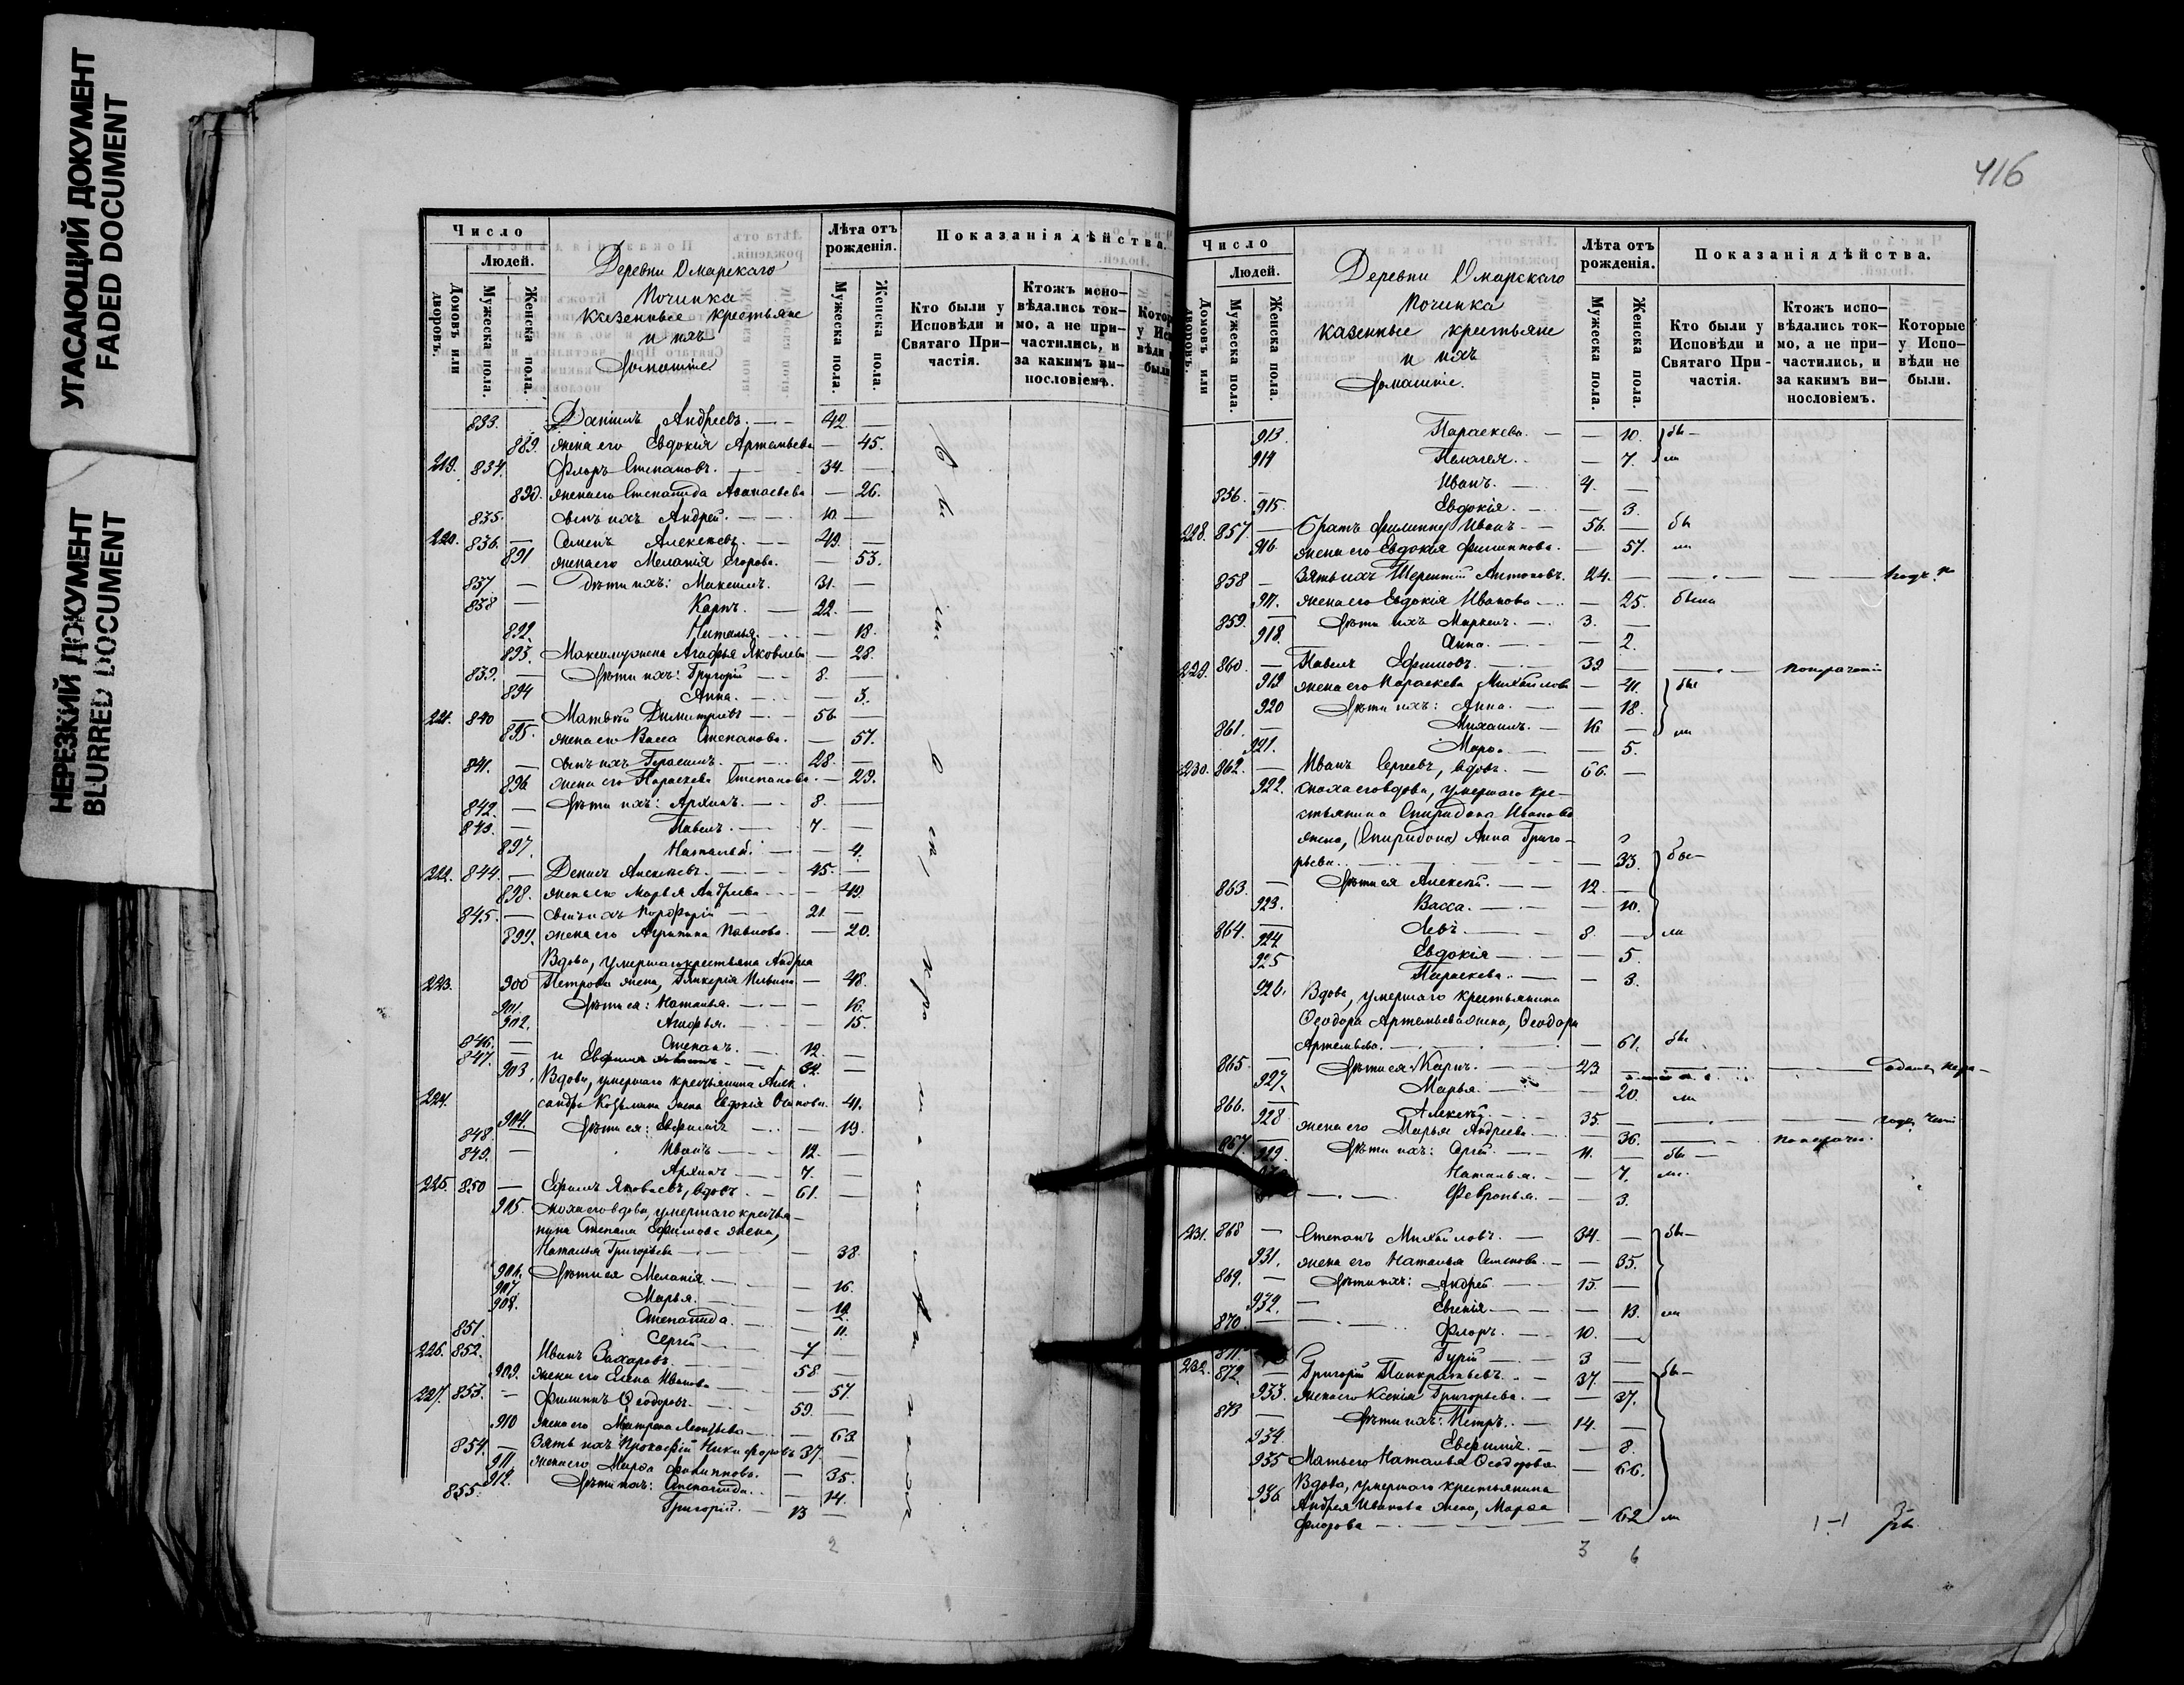 УГАСАЮЩИЙ ДОКУМЕНТ
FADED DOCUMENT
НЕРЕЗКИЙ ДОКУМЕНТ
BLURRED DOCUMENT
Число
Людей.
Домовъ или дворовъ.
Мужеска пола.
Женска пола.
Деревни Омарскаго
Починка
казенные крестьяне
и ихъ
домашніе
Лѣта отъ рожденія.
Мужеска пола.
Женска пола.
Показанія дѣйства.
Кто были у Исповѣди и Святаго Причастія.
Ктожъ исповѣдались токмо, а не причастились, и за какимъ винословіемъ.
833. Даніилъ Андреевъ. 42. —
889. жена его Евдокія Артемьева — 45.
219. 834. Флоръ Степановъ. 34. —
890. жена его Степанида — 26.
835. сынъ ихъ Андрей. 10 —
220. 836. — Семенъ Алексѣевъ. 49. —
891 жена его Меланія Егорова. — 53.
837. — Дѣти ихъ: Максимъ. 31. —
838 — Карпъ. 22. —
892. Наталья. — 18.
893. Максима жена Агафья Яковлева — 28.
839. — Дѣти ихъ: Григорій 8. —
894 Анна. — 3.
221. 840 — Матвей Димитріевъ 56 —
895. жена его Васса Степанова. — 57.
841. — сынъ ихъ Герасимъ. 28. —
896 жена его Параскева Степанова. — 29.
842. — Дѣти ихъ: Архипъ. 8. —
843. — Павелъ. 7. —
897. Наталья. — 4.
222. 844. — Денисъ Алексѣевъ. 45. —
898. жена его Марья Андреева — 49.
845. — сынъ ихъ Порфирій 21. —
899. жена его Агрипина Павлова. — 20.
Вдова, умершаго крестьяна Андрея
223. 900 Петрова жена, Гликерія — 48.
901. Дѣти ея: Наталья. — 16.
902. Агафья. — 15.
846. — Степанъ. 12. —
847. — и 32. —
903. Вдова, умершаго крестьянина Алек
224. сандра Козьмина жена Евдокія Осипова. 41.
904. Дѣти ея: Евфимія — 19.
848. — Иванъ 12. —
849. — Архипъ 7. —
225. 850 — Ефимъ Яковлевъ, вдовъ. 61. —
905. сноха его вдова, умершаго кресть-
нина Степана Ефимова жена,
Наталья Григорьева — 38.
906. Дѣти ея Меланія — 16.
907. Марья. — 12.
908. Степанида. — 11.
851. Сергѣй 7 —
226. 852. Иванъ Захаровъ. 58 —
909. жена его Елена Иванова — 57.
227. 853. — Филиппъ Ѳеодоровъ. 59. —
910 жена его Матрона Леонтьева — 63.
854. — Зять ихъ Прокофій Никифоровъ 37. —
911. жена его Марфа Филиппова. — 35.
912. Дѣти ихъ: Степанида. — 14.
855. Григорій. 13 —
2
416
Число
Людей.
Домовъ или дворовъ.
Мужеска пола.
Женска пола.
Деревни Омарскаго
Починка
казенные крестьяне
и ихъ
домашніе.
Лѣта отъ рожденія.
Мужеска пола.
Женска пола.
Показанія дѣйства.
Кто были у Исповѣди и Святаго Причастія.
Ктожъ исповѣдались токмо, а не причастились, и за какимъ винословіемъ.
Которые у Исповѣди не были.
913. Параскева. — 10. бы-
914 Пелагея. — 7. ли
856. — Иванъ. 4. —
915. Евдокія. — 3.
228. 857. — Братъ Филиппу Иванъ. 56. — бы
916. жена его Евдокія Филиппова. — 57. ли
858 — Зять ихъ Терентій Антоновъ. 24. —
917. жена его Евдокія Иванова — 25. была
859. — Дѣти ихъ Маркелъ. 3. —
918. Анна. — 2.
229. 860. — Павелъ Ефимовъ. 39 —
919 жена его Параскева Михайлова — 41. бы
920 Дѣти ихъ: Анна. — 18.
861. — Михаилъ. 16 — ли
921. Марѳа — 5.
230. 862. — Иванъ Сергеевъ, вдовъ. 66. —
922. сноха его вдова, умершаго кре-
стьянина Спиридона Иванова
жена, (Спиридона) Анна Григо-
рьева. — 33. бы-
863. — Дѣти ея Алексѣй. 12. —
923. Васса. — 10.
864. — Левъ 8. — ли
924
925 Евдокія — 5.
Параскева. — 3.
926. Вдова, умершаго крестьянина
Ѳеодора Артемьева жена, Ѳеодора
Артемьева. — 61. бы
865. — Дѣти ея Карпъ. 23 —
927. Марья. — 20. ли
866. — Алексѣй. 35. —
928 жена его Марья Андреева. — 36.
867. — Дѣти ихъ: Сергѣй 11. — бы —
929. Наталья. — 7. ли.
Февронья. — 3.
231. 868 — Степанъ Михайловъ. 34. — бы-
931. жена его Наталья Семенова. — 35.
869. — Дѣти ихъ: Андрей 15. —
932. — Евгенія. — 13. ли
870 — Флоръ. 10. —
871. Гурій 3 —
232. 872. — Григорій Панкратьевъ. 37. — бы-
933. жена его Ксенія Григорьева. — 37.
873 — Дѣти ихъ: Петръ. 14. —
934. Евфимія. — 8.
935 Мать его Наталья Ѳеодорова — 66.
936 Вдова, умершаго крестьянина
Андрея Иванова жена, Марѳа
Флорова — 62 ли
3 6